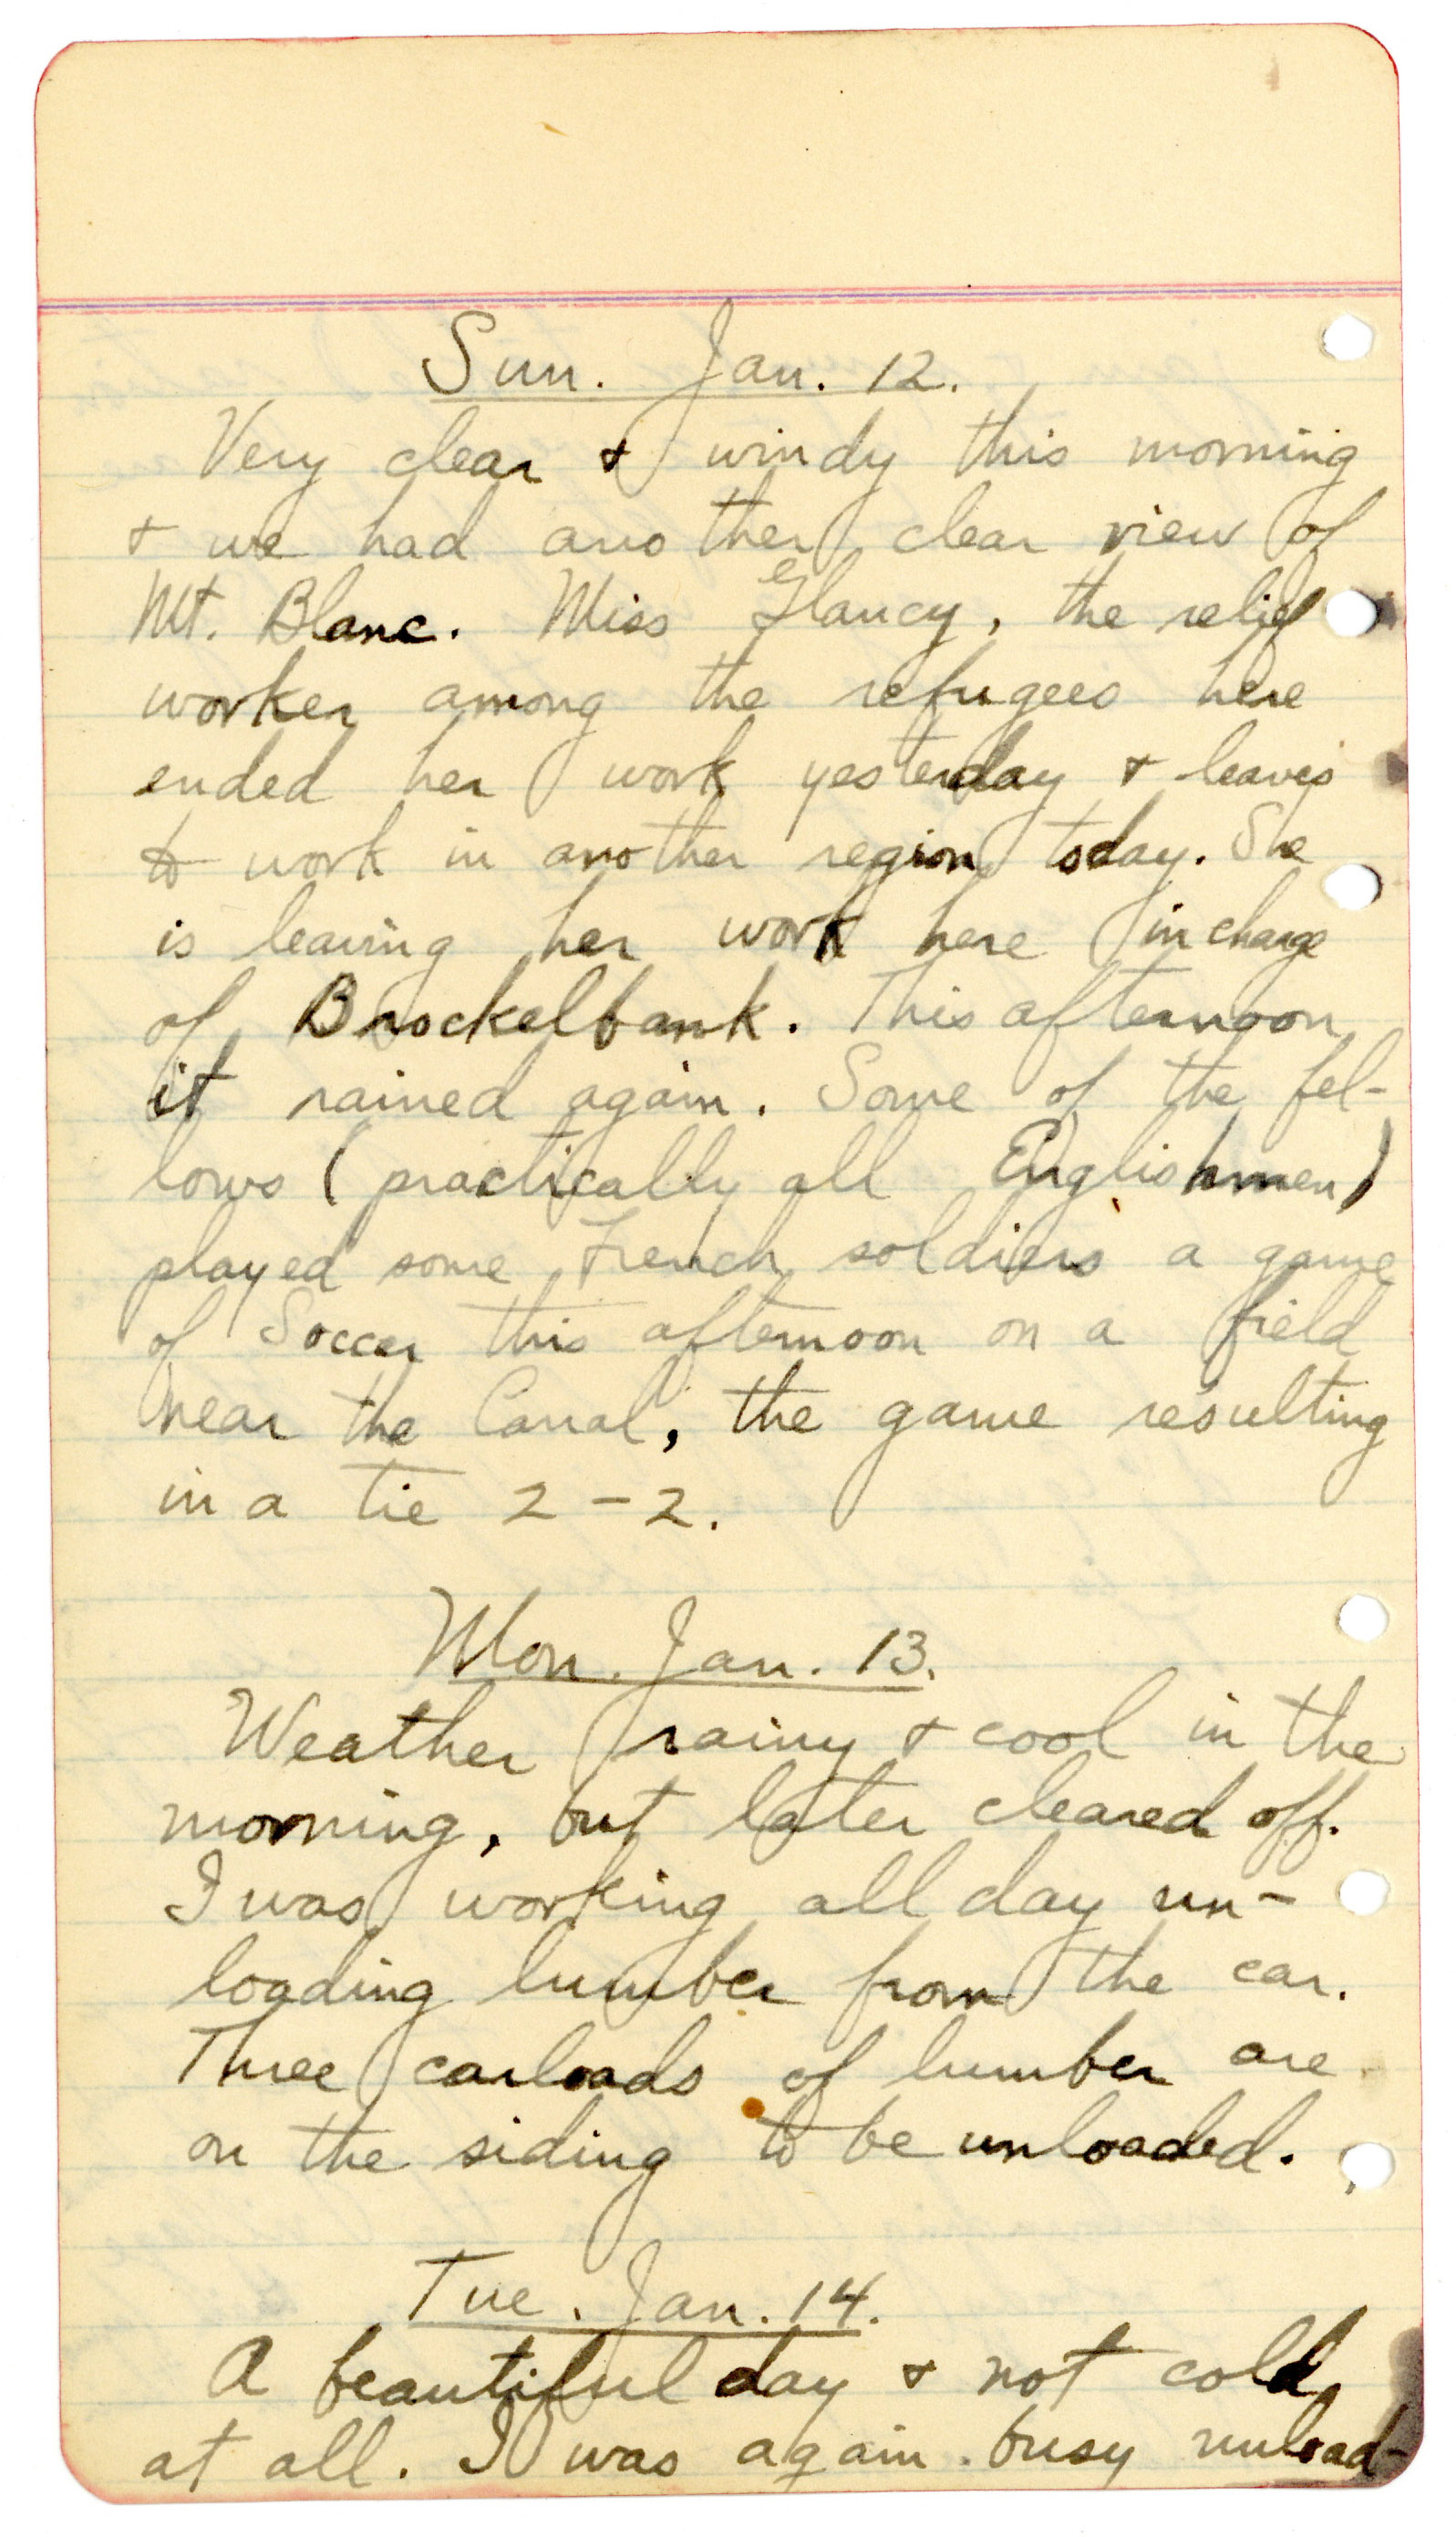 Sun. Jan. 12.
Very clear & windy this morning
& we had another clear view of
Mt. Blanc. Miss Glancy, the relief
worker among the refugees here
ended her work yesterday & leaves
to work in another region today. She
is leaving her work here in charge
of Brockelbank. This afternoon
it rained again. Some of the fel-
lows (practically all Englishmen)
played some French soldiers a game
of Soccer this afternoon on a field
near the Canal, the game resulting
in a tie 2-2.
Mon. Jan. 13.
Weather rainy & cool in the
morning, but later cleared off.
I was working all day un-
loading lumber from the car.
Three carloads of lumber are
on the siding to be unloaded.
Tue. Jan. 14.
A beautiful day & not cold
at all. I was again busy unload-